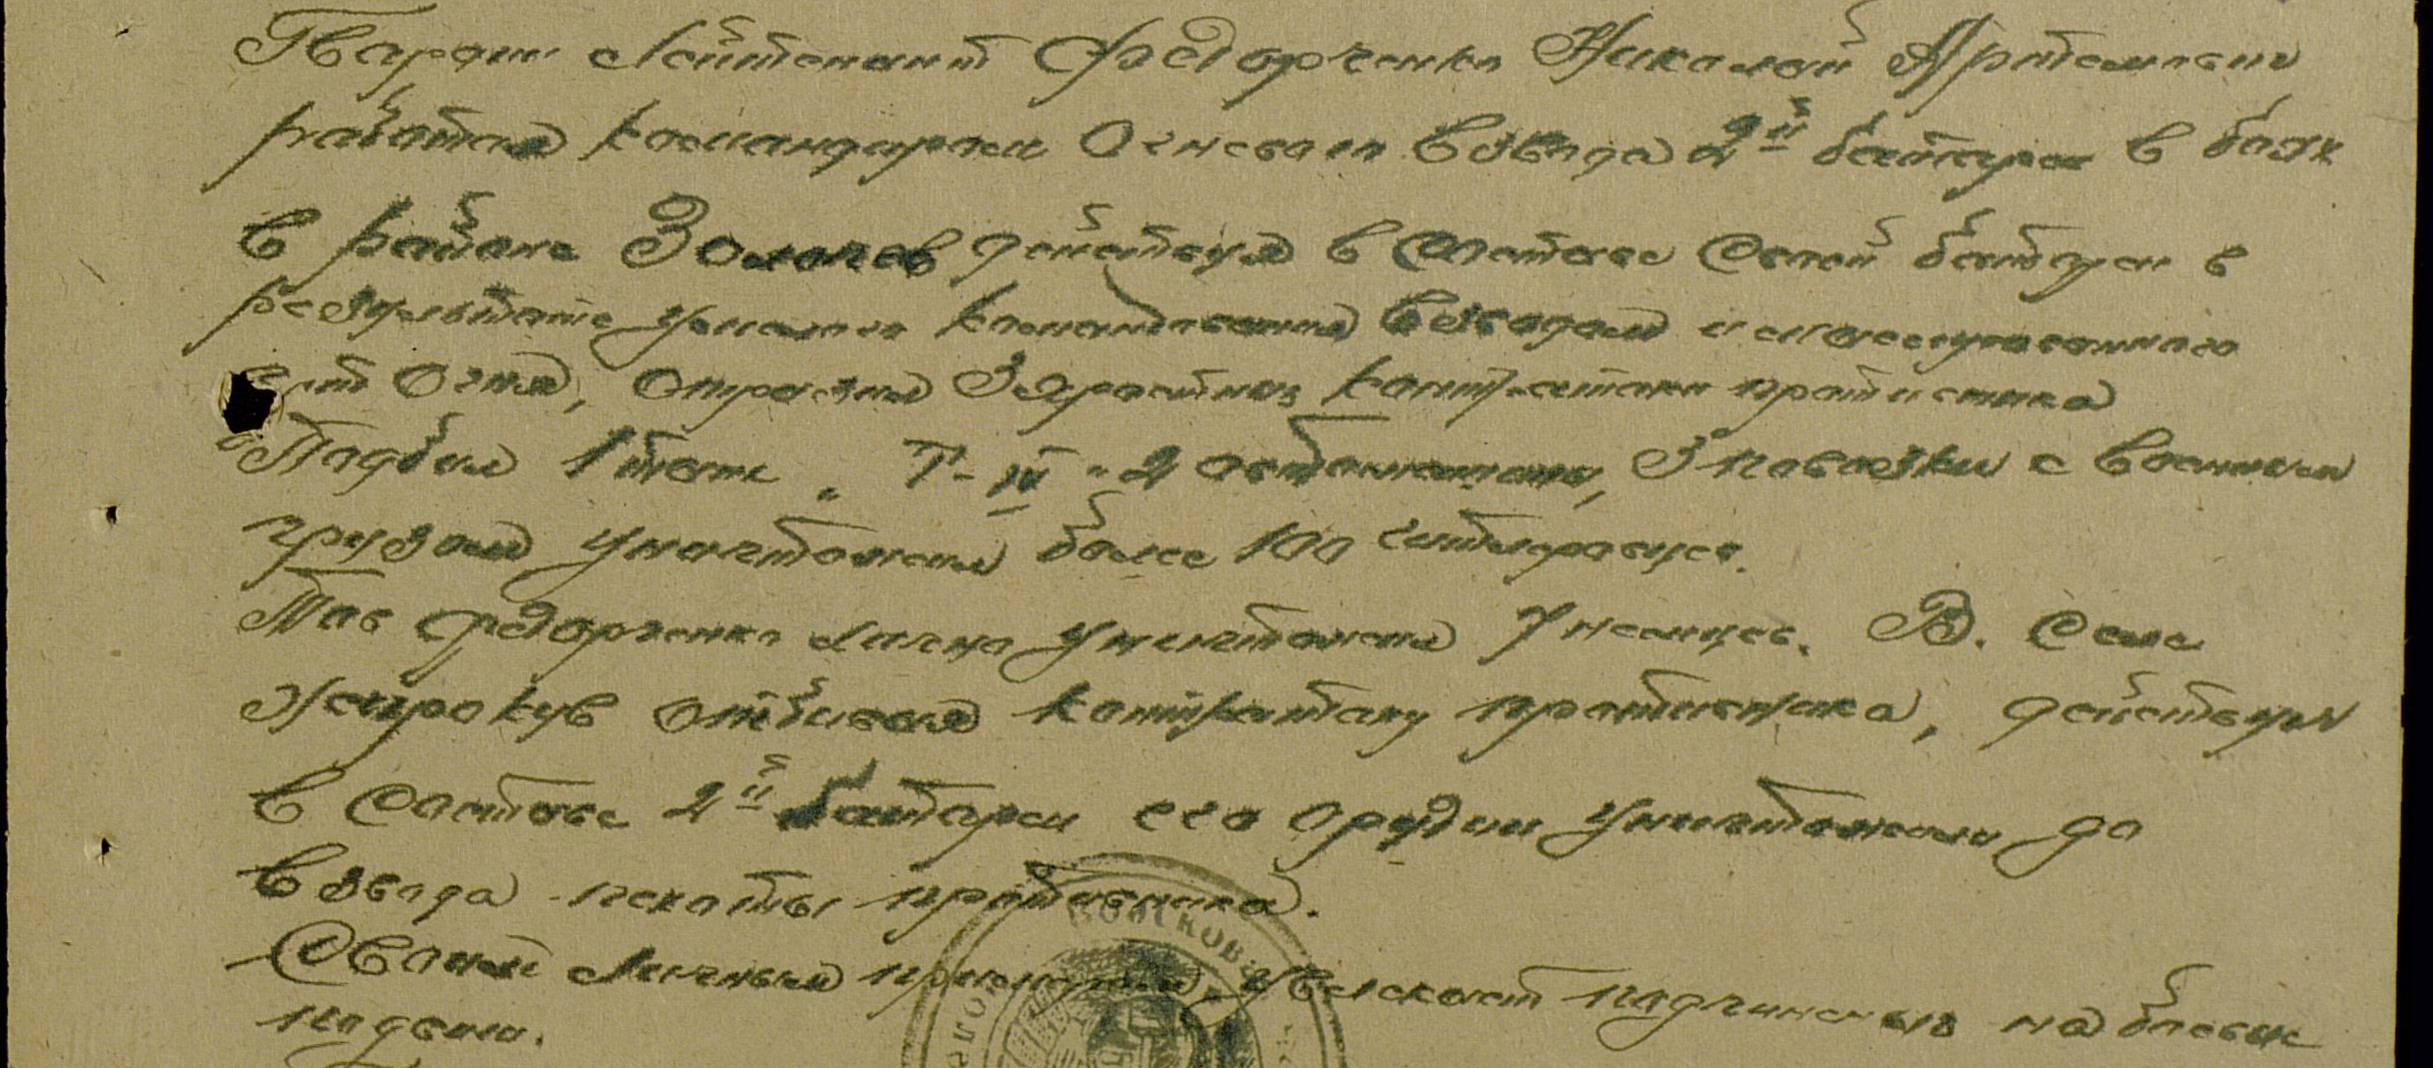 Гвардии Лейтенант Федорченко Николай Артемович
работая командиром Огневого взвода 2й батареи в боях
в районе Золочев действуя в составе своей батареи в
результате умелого командования взводом и массированного
огня, отразил яростных контратаки противника
Подбил 1 танк "Т-IV" 2 автомашины, 3 повозки с военным
грузом уничтожил более 100 гитлеровцев.
Тов Федорченко лично уничтожил 7 немцев. В. селе
отбивая контратаку противника, действуя
в составе 2й батареи его орудии уничтожили до
взвода пехоты противника.
Своим личным примером, увлекает подчиненных на боевые
подвиги.
ВОЙСКОВ
ПОЛЕ